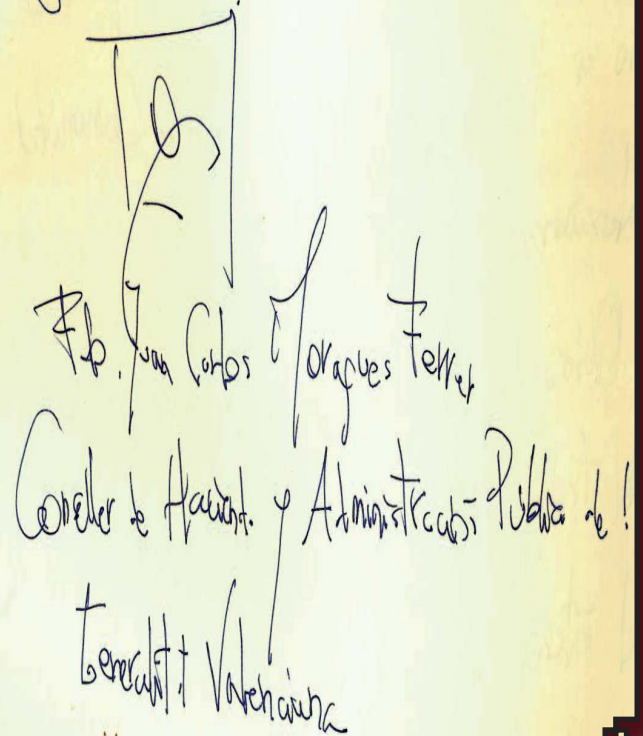 Fdo. Juan Carlos Moragues Ferrer
Conseller de Hacienda y Administració Pública de l
Generalitat Valenciana